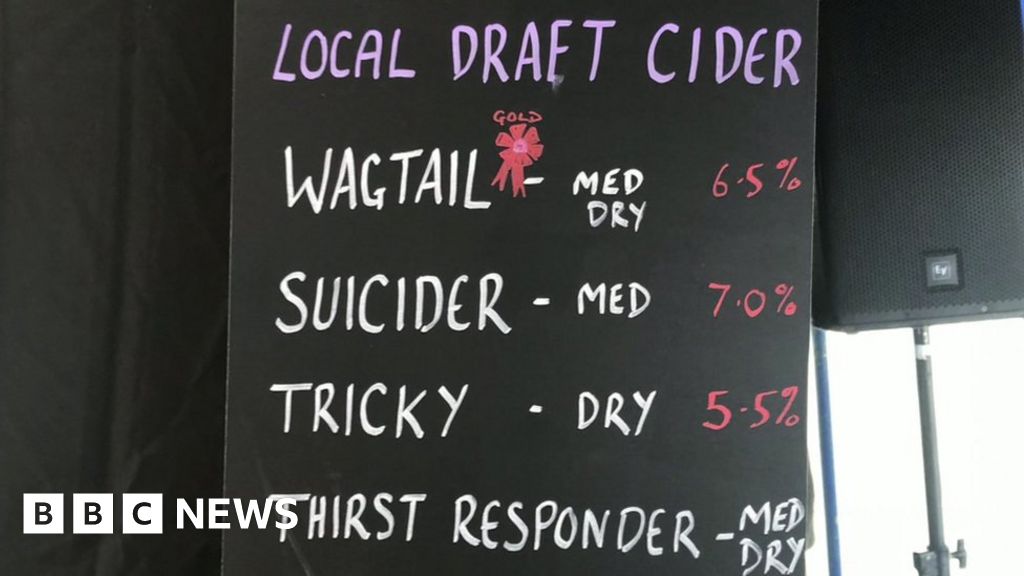 LOCAL DRAFT CIDER
GOLD
WAGTAIL - MED DRY 6.5%
SUICIDER - MED 7.0%
TRICKY - DRY 5.5%
THIRST RESPONDER - MED DRY
BBC NEWS
EV